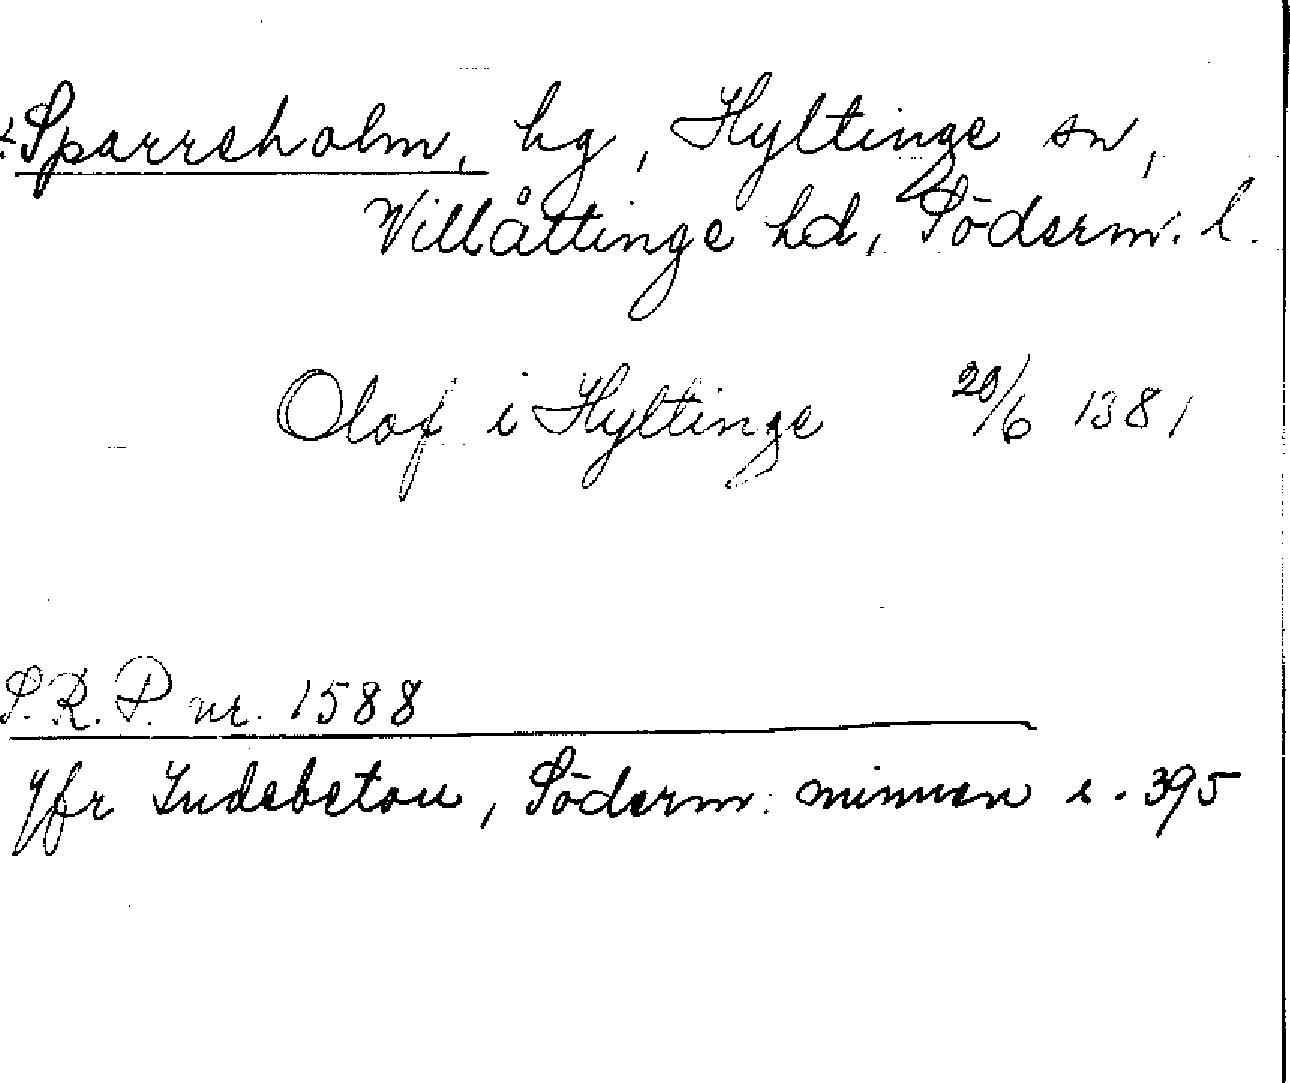 Sparreholm, hg, Hyltinge sn,
Villåttinge hd, Söderm. l.
Olof i Hyltinge 20/6 1381
S.R.P. nr. 1588
Jfr Indebetou, Söderm: minnen s. 395